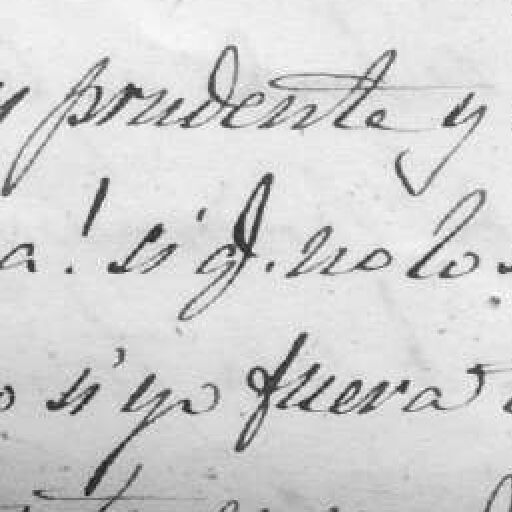 y prudente y
a! si q. no lo s
o si yo fuera